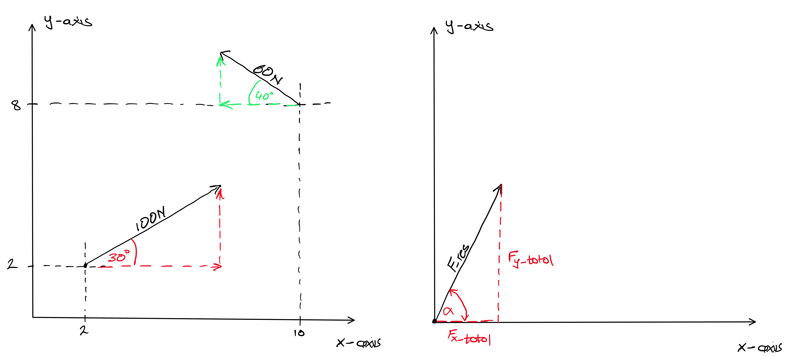 y-axis
60N
40°
8
100N
30°
2
2
10
x-axis
y-axis
F-res
Fy-total
α
Fx-total
x-axis